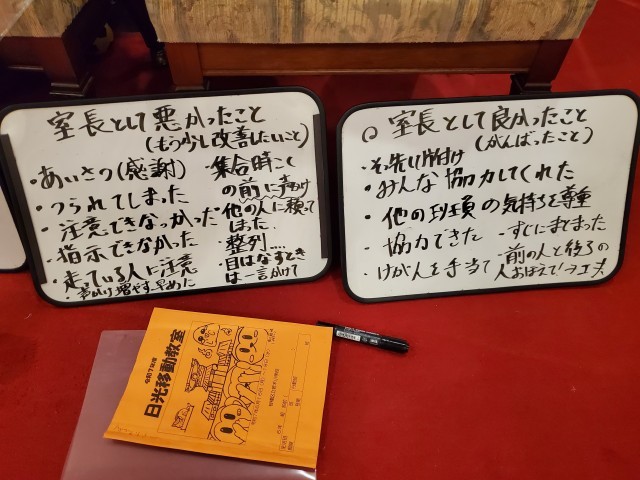 室長として悪かったこと
(もう少し改善したいこと)
・あいさつ(感謝)
・つられてしまった
・注意できなっかった
・指示できなかった
・走っている人に注意
・集合時
の前に声かけ
・他の人に頼って
しまた
・整列....
・目はなすとき
は一言かけて
室長として良かったこと
(がんばったこと)
・みんな協力してくれた
・他の班の気持ちを尊重
・協力できた
・すぐにまとまった
・けが人を手当て
・前の人と後ろの
人おぼえて!→工夫
令和7年度
日光移動教室